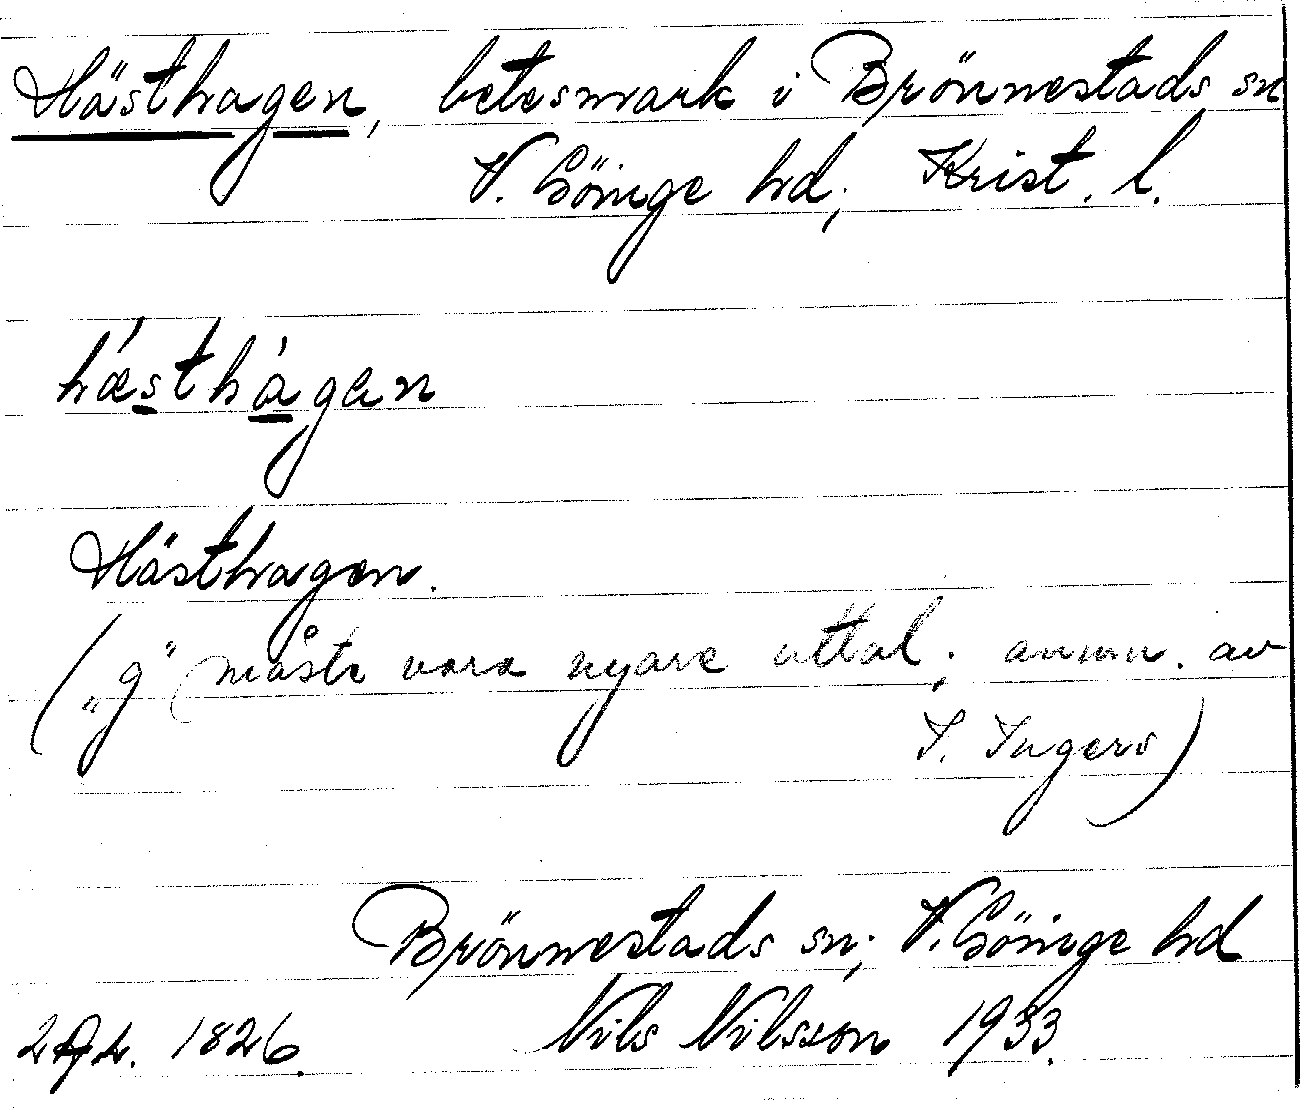 Hästhagen, betesmark i Brönnestads sn
V. Göinge hd; Krist. l.
hæ´sthà gan
Hästhagen.
(„g" måste vara nyare uttal; anmn. av
I. Ingers)
Brönnestads sn; V. Göinge hd
1826. Nils Nilsson 1933.